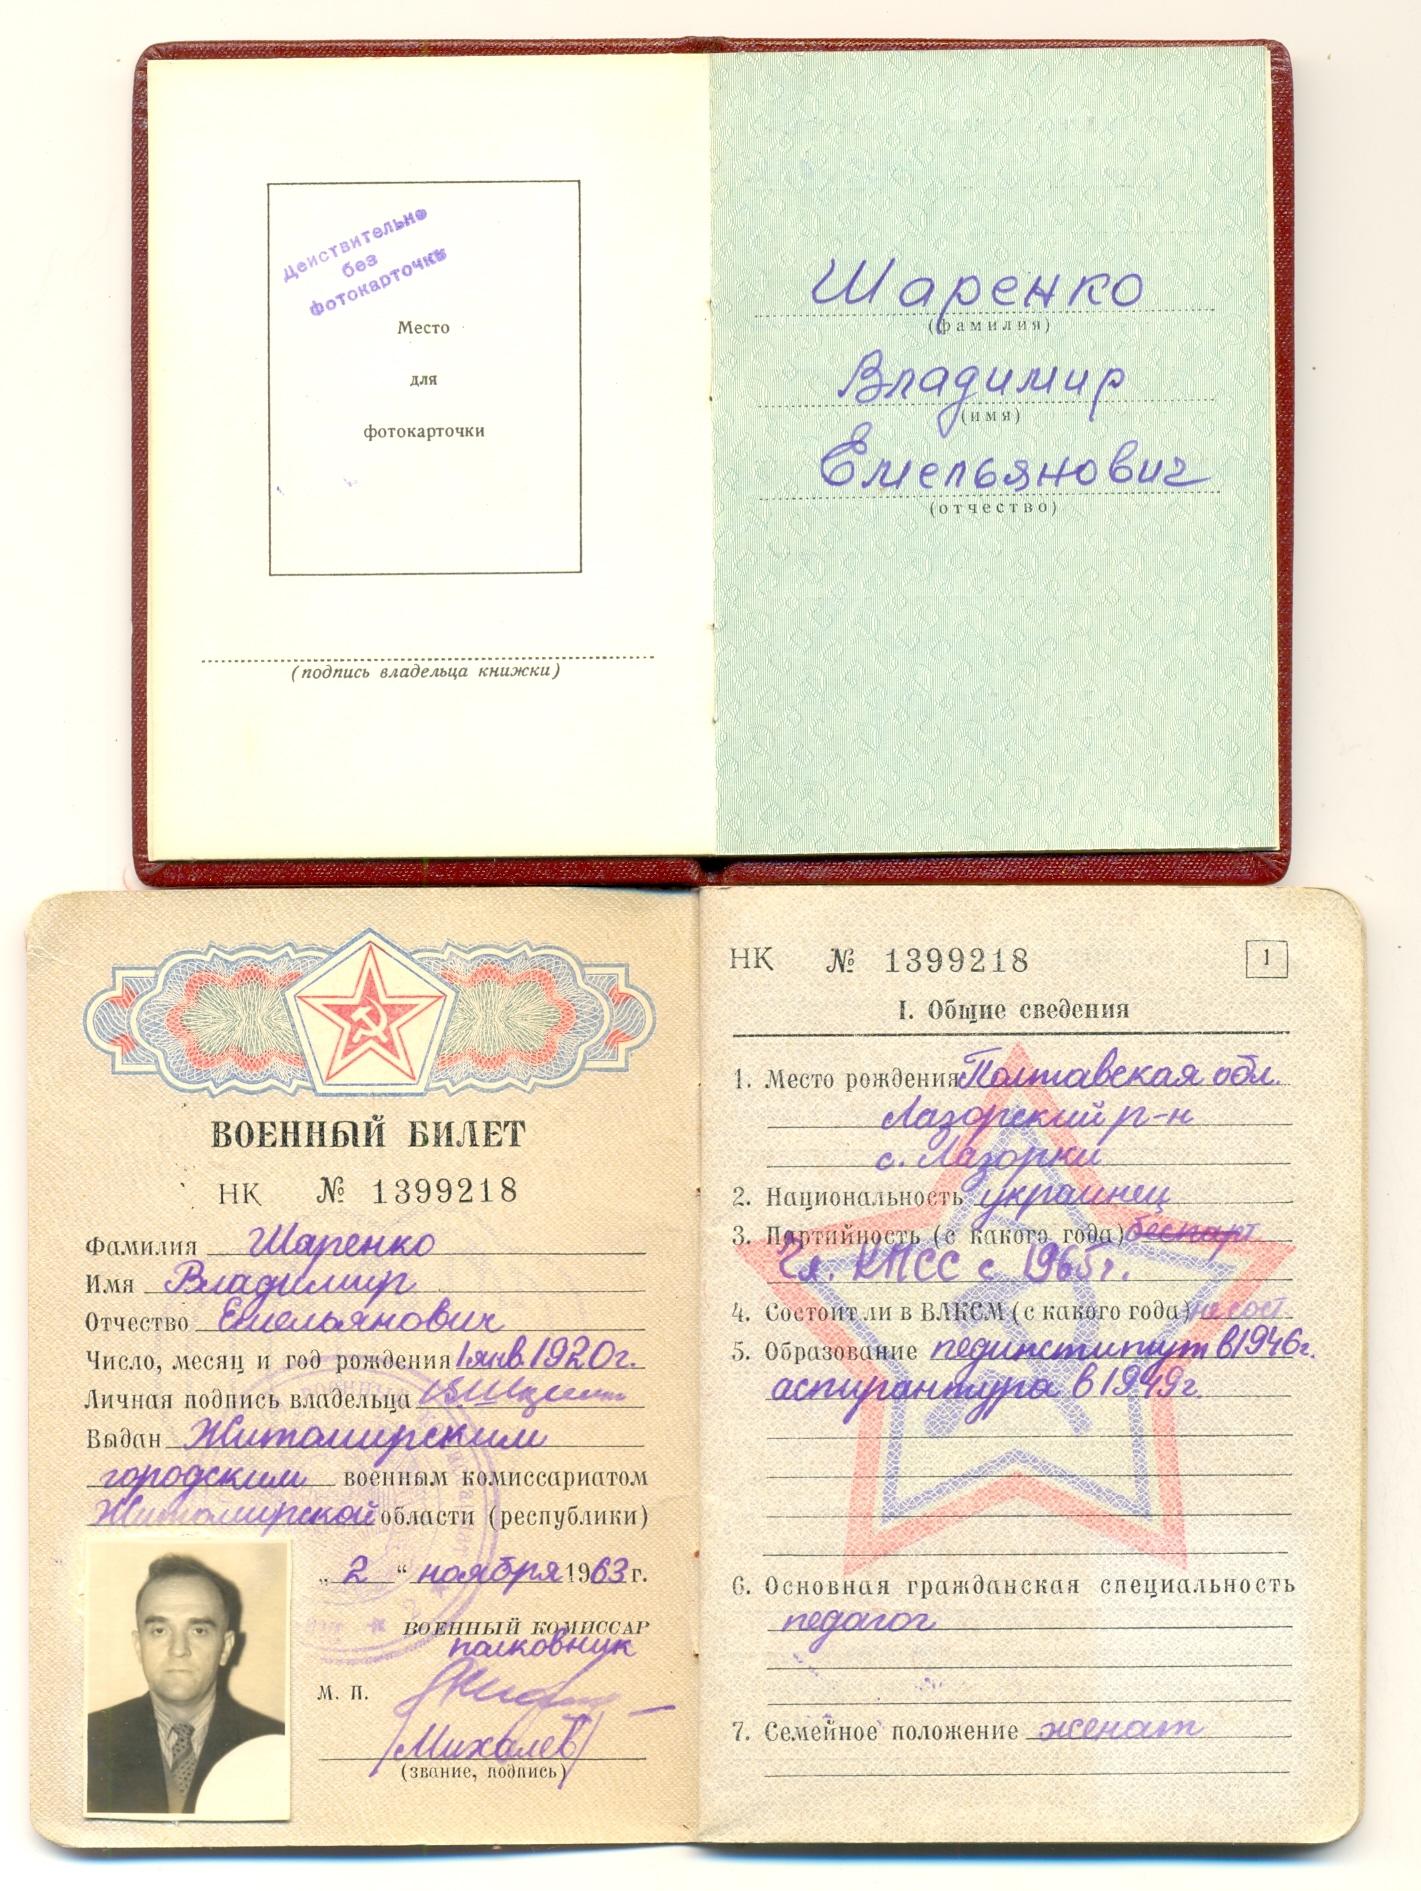 Действительно
без
фотокарточки
Место
для
фотокарточки
(подпись владельца книжки)
Шаренко
(фамилия)
Владимир
(имя)
Емельянович
(отчество)
ВОЕННЫЙ БИЛЕТ
НК № 1399218
Фамилия Шаренко
Имя Владимир
Отчество Емельянович
Число, месяц и год рождения 1 янв 1920 г.
Личная подпись владельца
Выдан Житомирским
городским военным комиссариатом
Житомирской области (республики)
„ 2 “ ноября 1963 г.
ВОЕННЫЙ КОМИССАР
полковник
М. П.
/Михалев/
(звание, подпись)
НК № 1399218
1
I. Общие сведения
1. Место рождения Полтавская обл.
Лазорский р-н
с. Лазорки
2. Национальность украинец
3. Партийность (с какого года) беспарт
Чл. КПСС с 1965 г.
4. Состоит ли в ВЛКСМ (с какого года) не сост.
5. Образование пединститут в 1946 г.
аспирантура в 1949 г
6. Основная гражданская специальность
педагог
7. Семейное положение женат